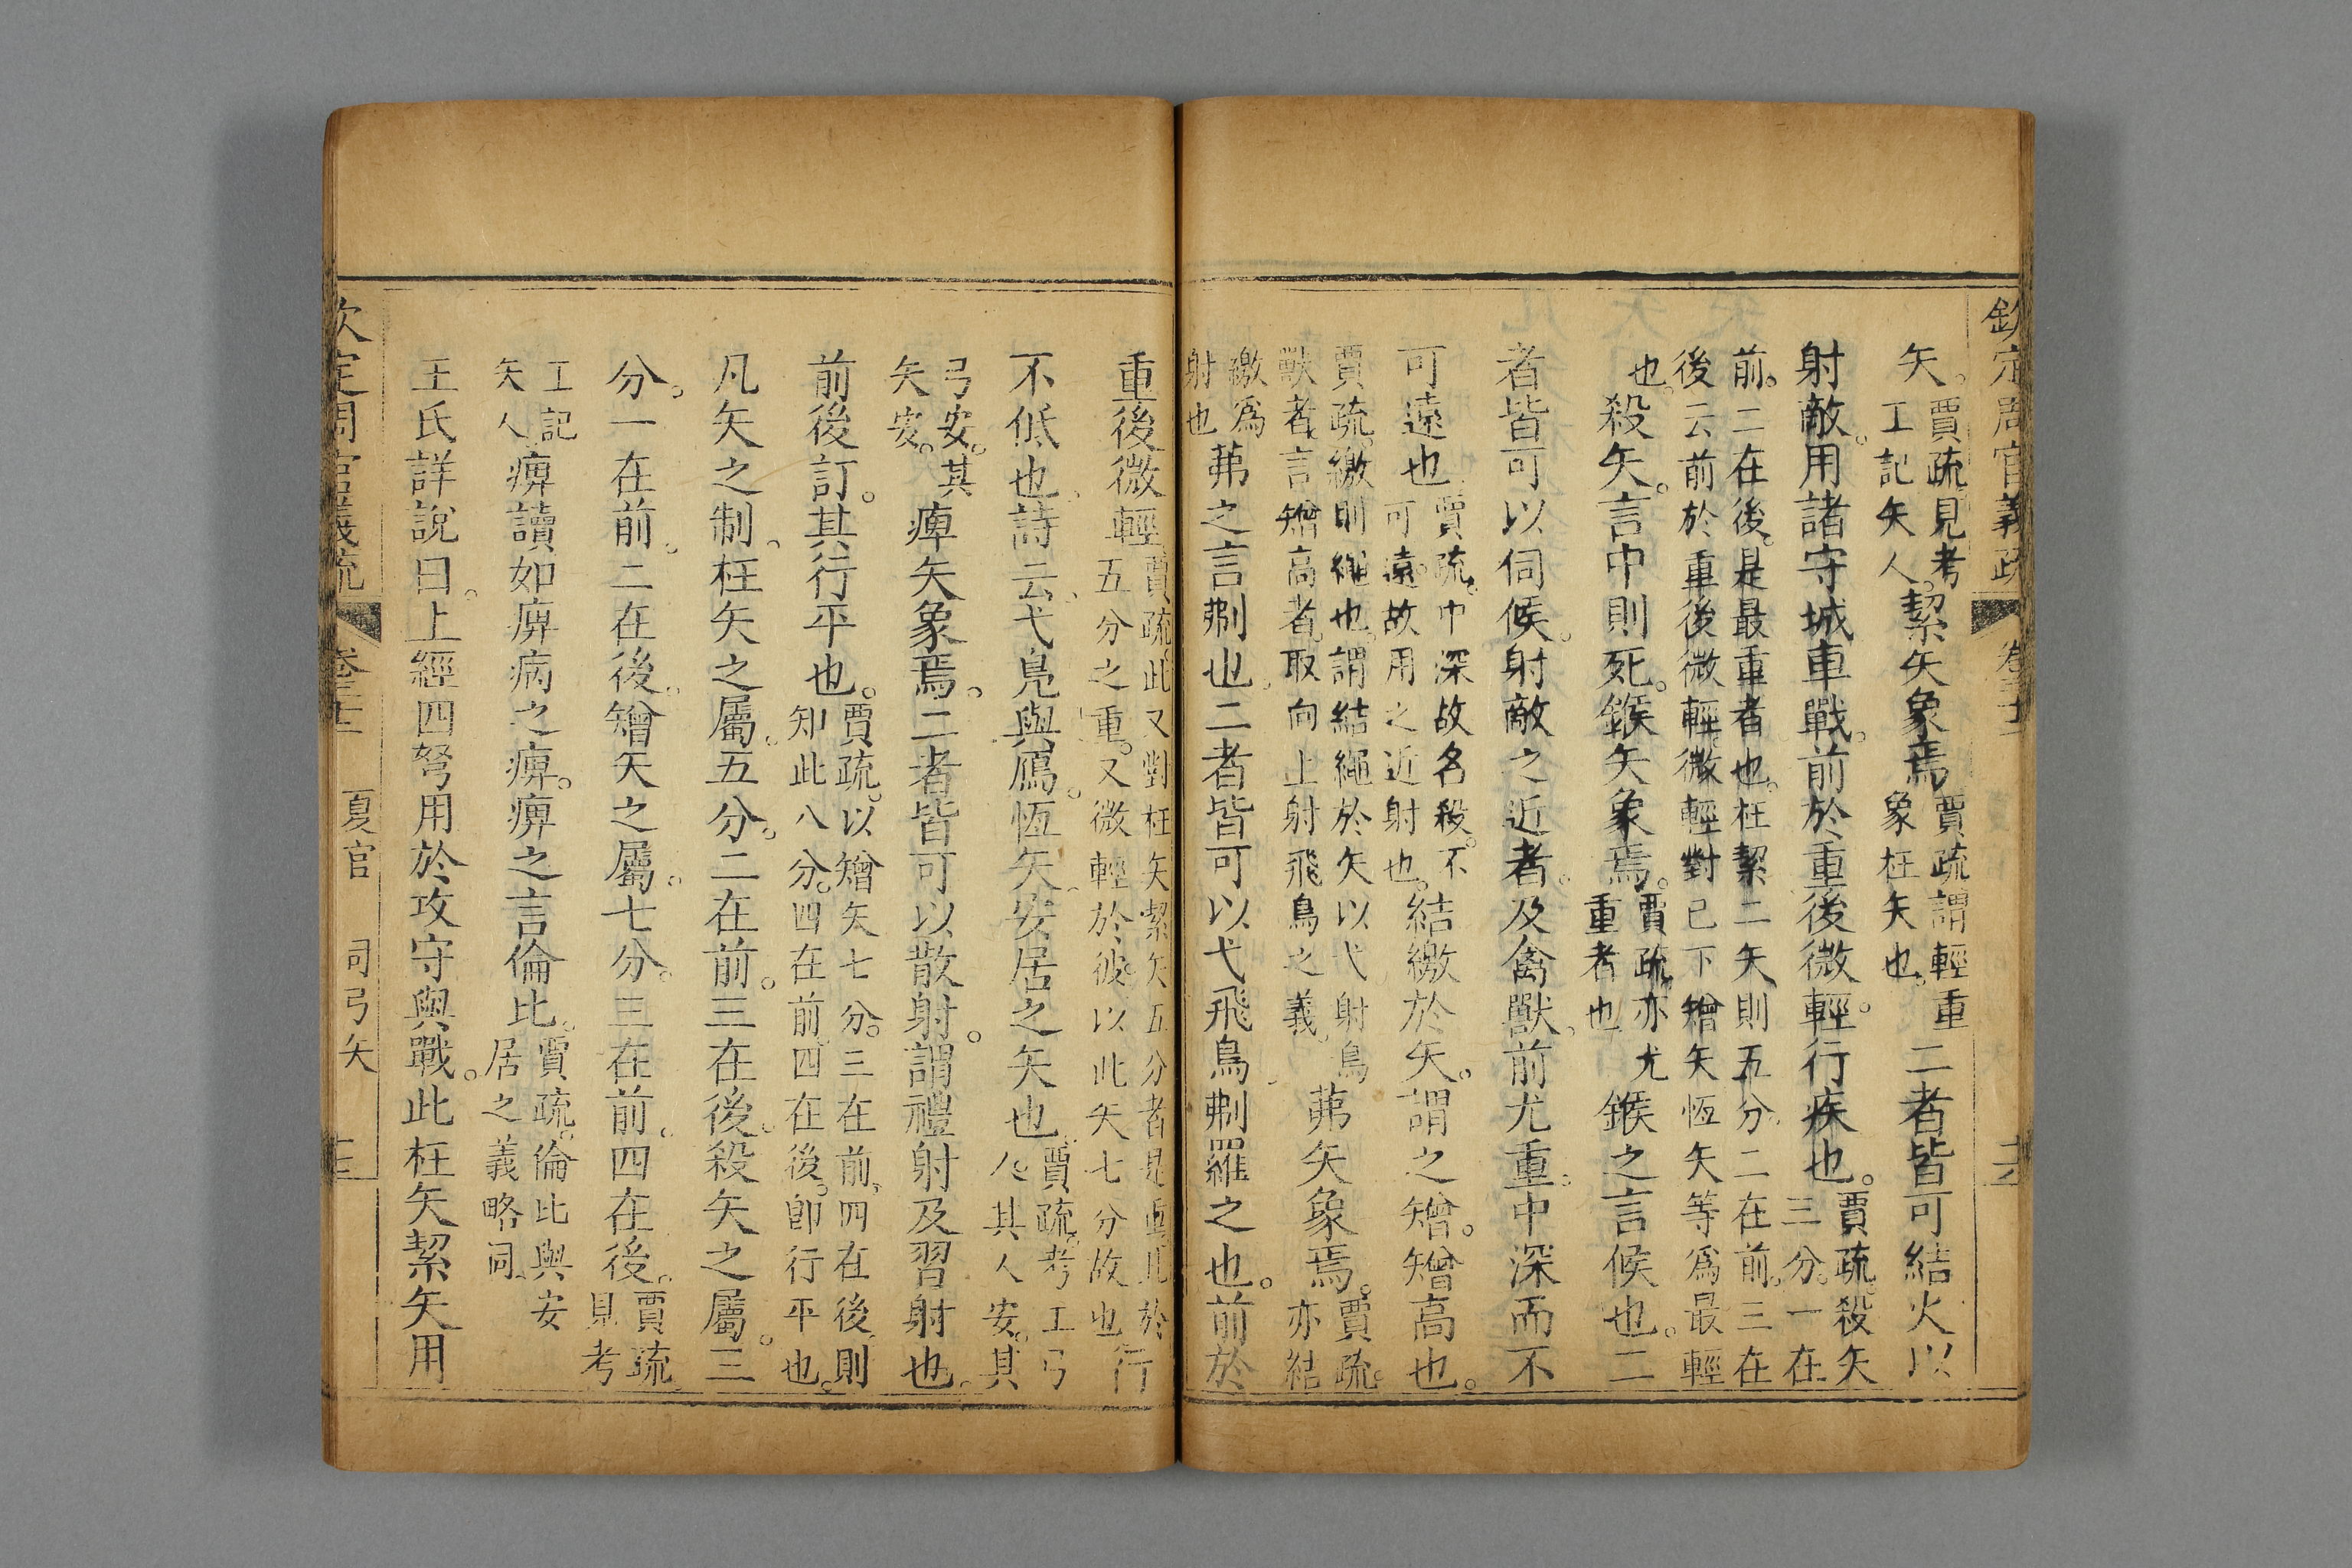 欽定周官義疏
矢。賈疏見考工記矢人。絜矢象焉賈疏謂輕重象枉矢也。二者皆可結火以
射敵。用諸守城車戰。前於重後微輕。行疾也。賈疏。殺矢三分。一在
前。二在後。是最重者也。枉絜二矢則五分。二在前。三在後云前於重後微輕。微輕對已下矰矢恆矢等爲最輕
也。殺矢。言中則死。鍭矢象焉。賈疏亦尤重者也鍭之言候也。二
者皆可以伺候。射敵之近者。及禽獸。前尤重。中深而不
可遠也。賈疏。中深故名殺。不可遠。故用之近射也。結繳於矢。謂之矰。矰高也。
賈疏。繳則繩也。謂結繩於矢以弋射鳥獸者。言矰高者。取向上射飛鳥之義。茀矢象焉。賈疏。亦結
繳爲射也茀之言刜也。二者皆可以弋飛鳥。刜羅之也。前於
重後微輕。賈疏。此又對枉矢絜矢五分者是重於五分之重。又微輕於彼。以此矢七分故也行
不低也。詩云。弋鳧與鴈。恆矢。安居之矢也。賈疏。考工弓人其人安。其
弓安。其矢安。痺矢象焉。二者皆可以散射。謂禮射及習射也。
前後訂。其行平也。賈疏。以矰矢七分。三在前。四在後。則知此八分。四在前。四在後。卽行平也。
凡矢之制。枉矢之屬。五分。二在前。三在後。殺矢之屬。三
分。一在前。二在後。矰矢之屬。七分。三在前。四在後。賈疏見考
工記矢人痹讀如痹病之痹。痹之言倫比。賈疏。倫比與安居之義略同。
王氏詳說曰。上經四弩用於攻守與戰。此枉矢絜矢用
欽定周官義疏 夏官 司弓矢